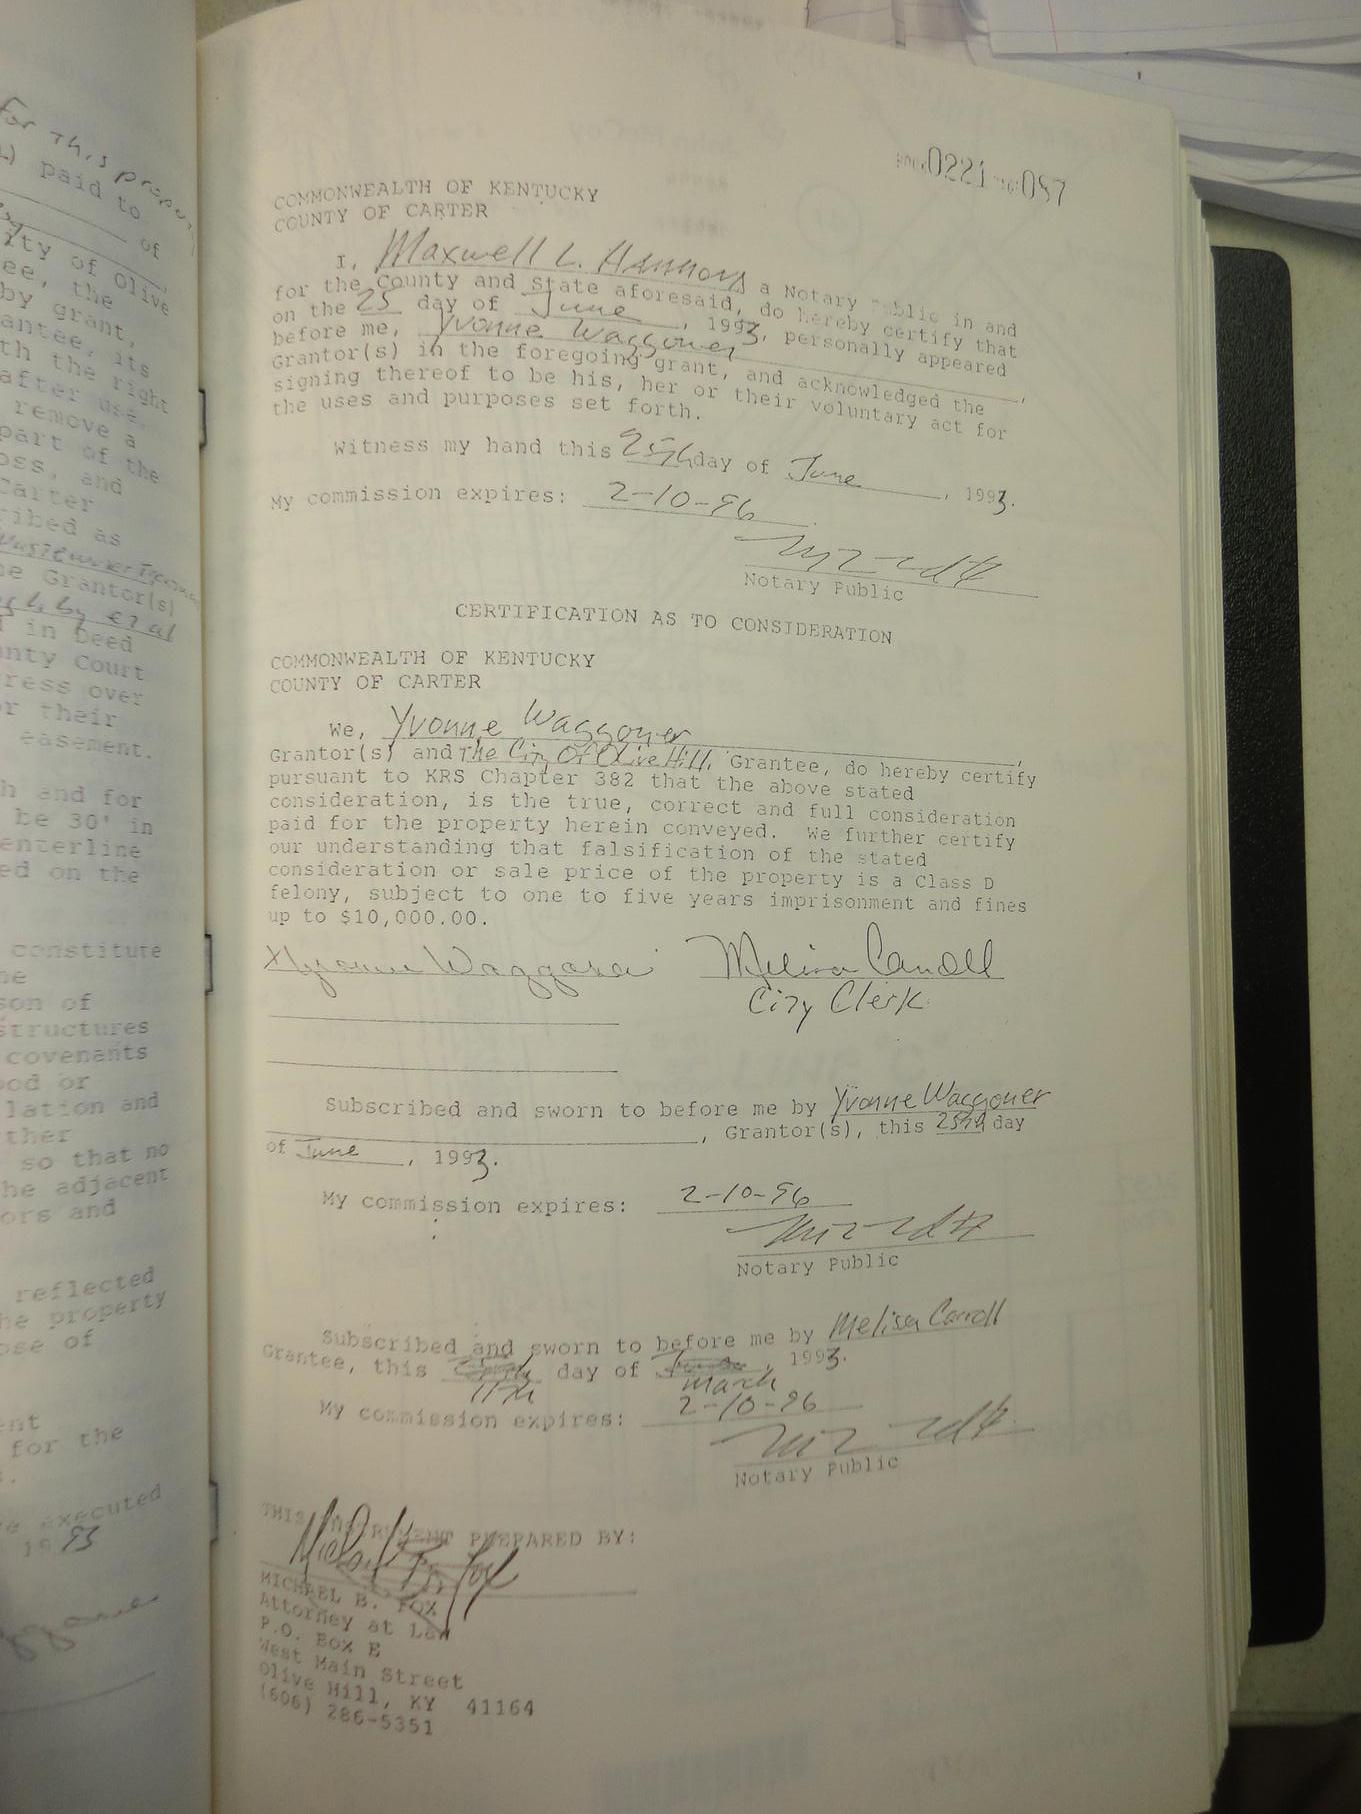 for this prope
paid to
of
ity of Olive
ee, the
by grant,
antee, its
th the right
after use,
remove a
part of the
oss, and
Carter
ribed as
he Grantor(s)
in Deed
nty Court
ress over
or their
easement.
h and for
be 30' in
enterline
ed on the
constitute
he
son of
structures
covenants
od or
lation and
ther
so that no
he adjacent
ors and
reflected
he property
ose of
ent
for the
e executed
1993
BOOK 0221 PAGE 087
COMMONWEALTH OF KENTUCKY
COUNTY OF CARTER
I, Maxwell L. Hammons a Notary Public in and
for the County and State aforesaid, do hereby certify that
on the 25 day of June, 1993, personally appeared
before me, Yvonne Waggoner,
Grantor(s) in the foregoing grant, and acknowledged the
signing thereof to be his, her or their voluntary act for
the uses and purposes set forth.
Witness my hand this 25th day of June, 1993.
My commission expires: 2-10-96
Notary Public
CERTIFICATION AS TO CONSIDERATION
COMMONWEALTH OF KENTUCKY
COUNTY OF CARTER
We, Yvonne Waggoner,
Grantor(s) and The City Of Olive Hill, Grantee, do hereby certify
pursuant to KRS Chapter 382 that the above stated
consideration, is the true, correct and full consideration
paid for the property herein conveyed. We further certify
our understanding that falsification of the stated
consideration or sale price of the property is a Class D
felony, subject to one to five years imprisonment and fines
up to $10,000.00.
X Yvonne Waggoner Melisa Carroll
City Clerk
Subscribed and sworn to before me by Yvonne Waggoner
, Grantor(s), this 25th day
of June, 1993.
My commission expires: 2-10-96
Notary Public
Subscribed and sworn to before me by Melisa Carroll
Grantee, this day of , 1993.
11th March
My commission expires: 2-10-96
Notary Public
THIS INSTRUMENT PREPARED BY:
Michael B. Fox
MICHAEL B. FOX
Attorney at Law
P.O. Box E
West Main Street
Olive Hill, KY 41164
(606) 286-5351